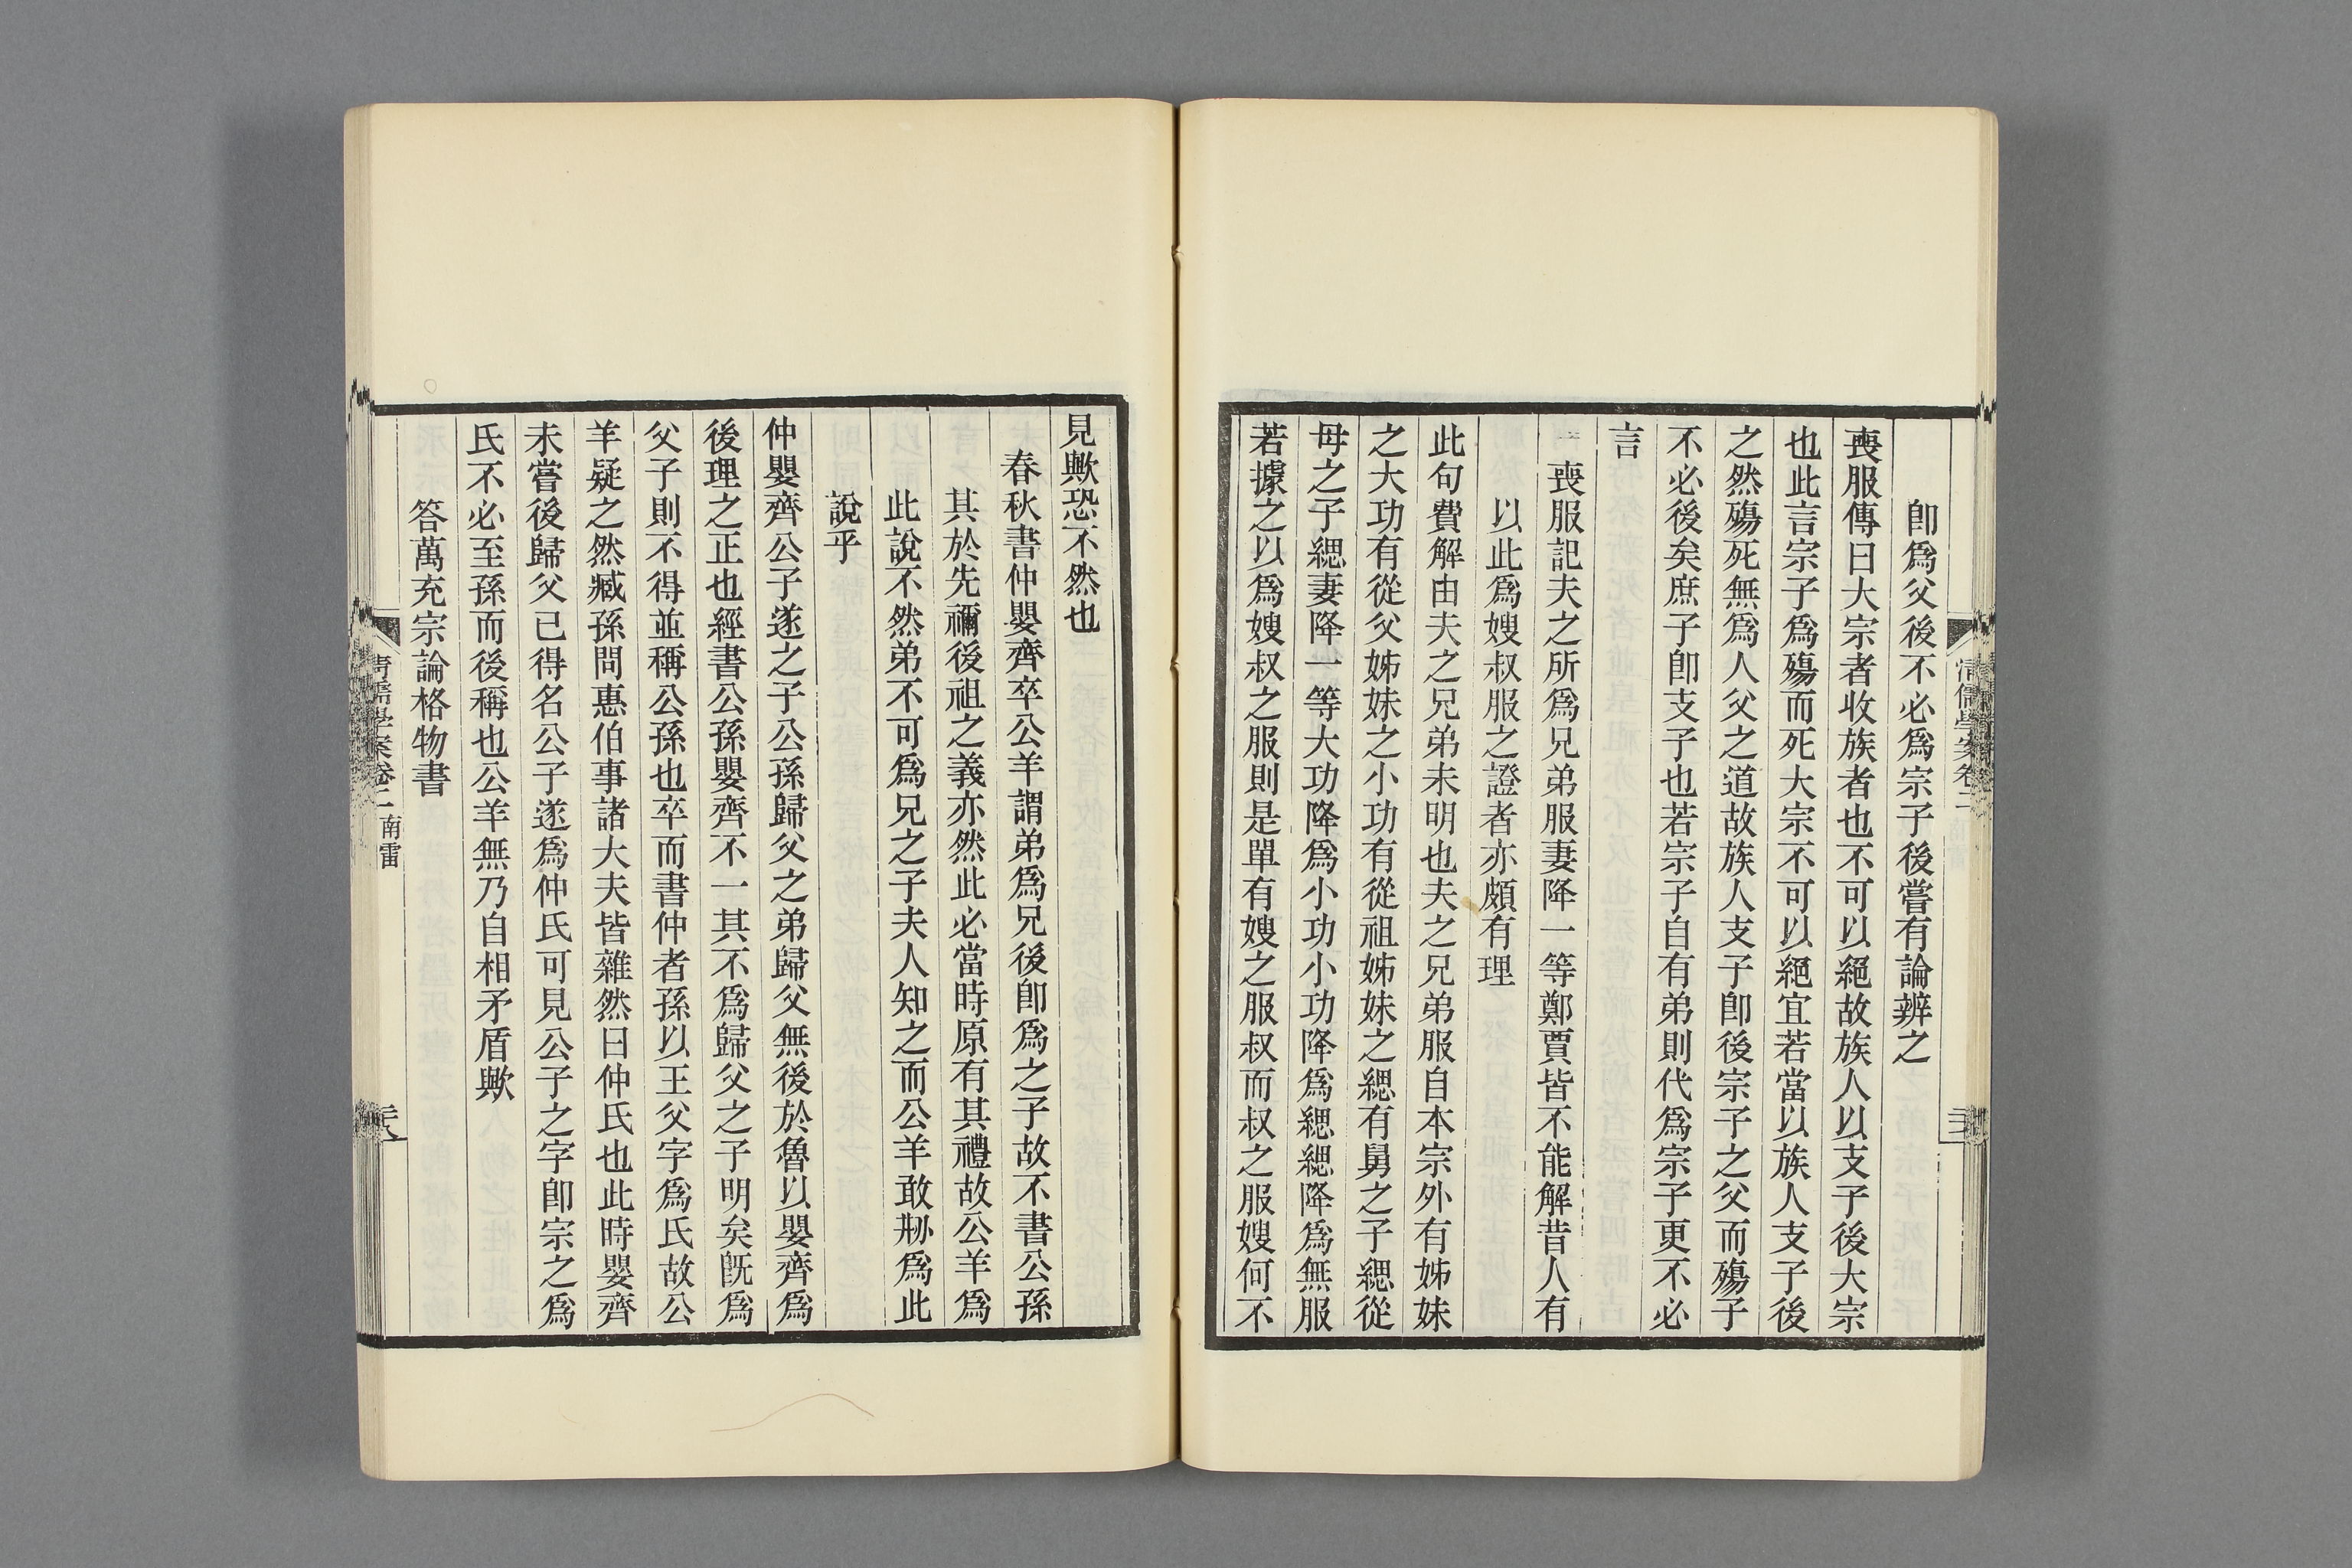 清儒學案卷二
卽爲父後不必爲宗子後嘗有論辨之
喪服傳曰大宗者收族者也不可以絕故族人以支子後大宗
也此言宗子爲殤而死大宗不可以絕宜若當以族人支子後
之然殤死無爲人父之道故族人支子卽後宗子之父而殤子
不必後矣庶子卽支子也若宗子自有弟則代爲宗子更不必
言
喪服記夫之所爲兄弟服妻降一等鄭賈皆不能解昔人有
以此爲嫂叔服之證者亦頗有理
此句費解由夫之兄弟未明也夫之兄弟服自本宗外有姊妹
之大功有從父姊妹之小功有從祖姊妹之緦有舅之子緦從
母之子緦妻降一等大功降爲小功小功降爲緦緦降爲無服
若據之以爲嫂叔之服則是單有嫂之服叔而叔之服嫂何不
見歟恐不然也
春秋書仲嬰齊卒公羊謂弟爲兄後卽爲之子故不書公孫
其於先禰後祖之義亦然此必當時原有其禮故公羊爲
此說不然弟不可爲兄之子夫人知之而公羊敢刱爲此
說乎
仲嬰齊公子遂之子公孫歸父之弟歸父無後於魯以嬰齊爲
後理之正也經書公孫嬰齊不一其不爲歸父之子明矣旣爲
父子則不得並稱公孫也卒而書仲者孫以王父字爲氏故公
羊疑之然臧孫問惠伯事諸大夫皆雜然曰仲氏也此時嬰齊
未嘗後歸父已得名公子遂爲仲氏可見公子之字卽宗之爲
氏不必至孫而後稱也公羊無乃自相矛盾歟
答萬充宗論格物書
清儒學案卷二 南雷